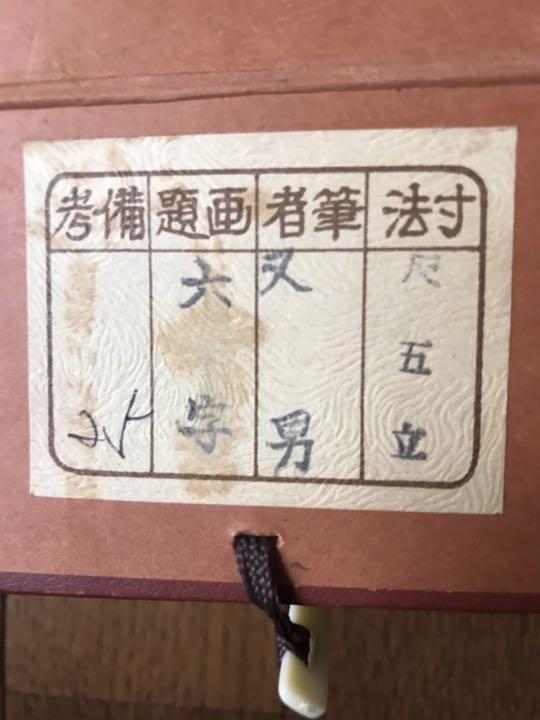 寸法
尺五立
筆者
又男
画題
六字
備考
25